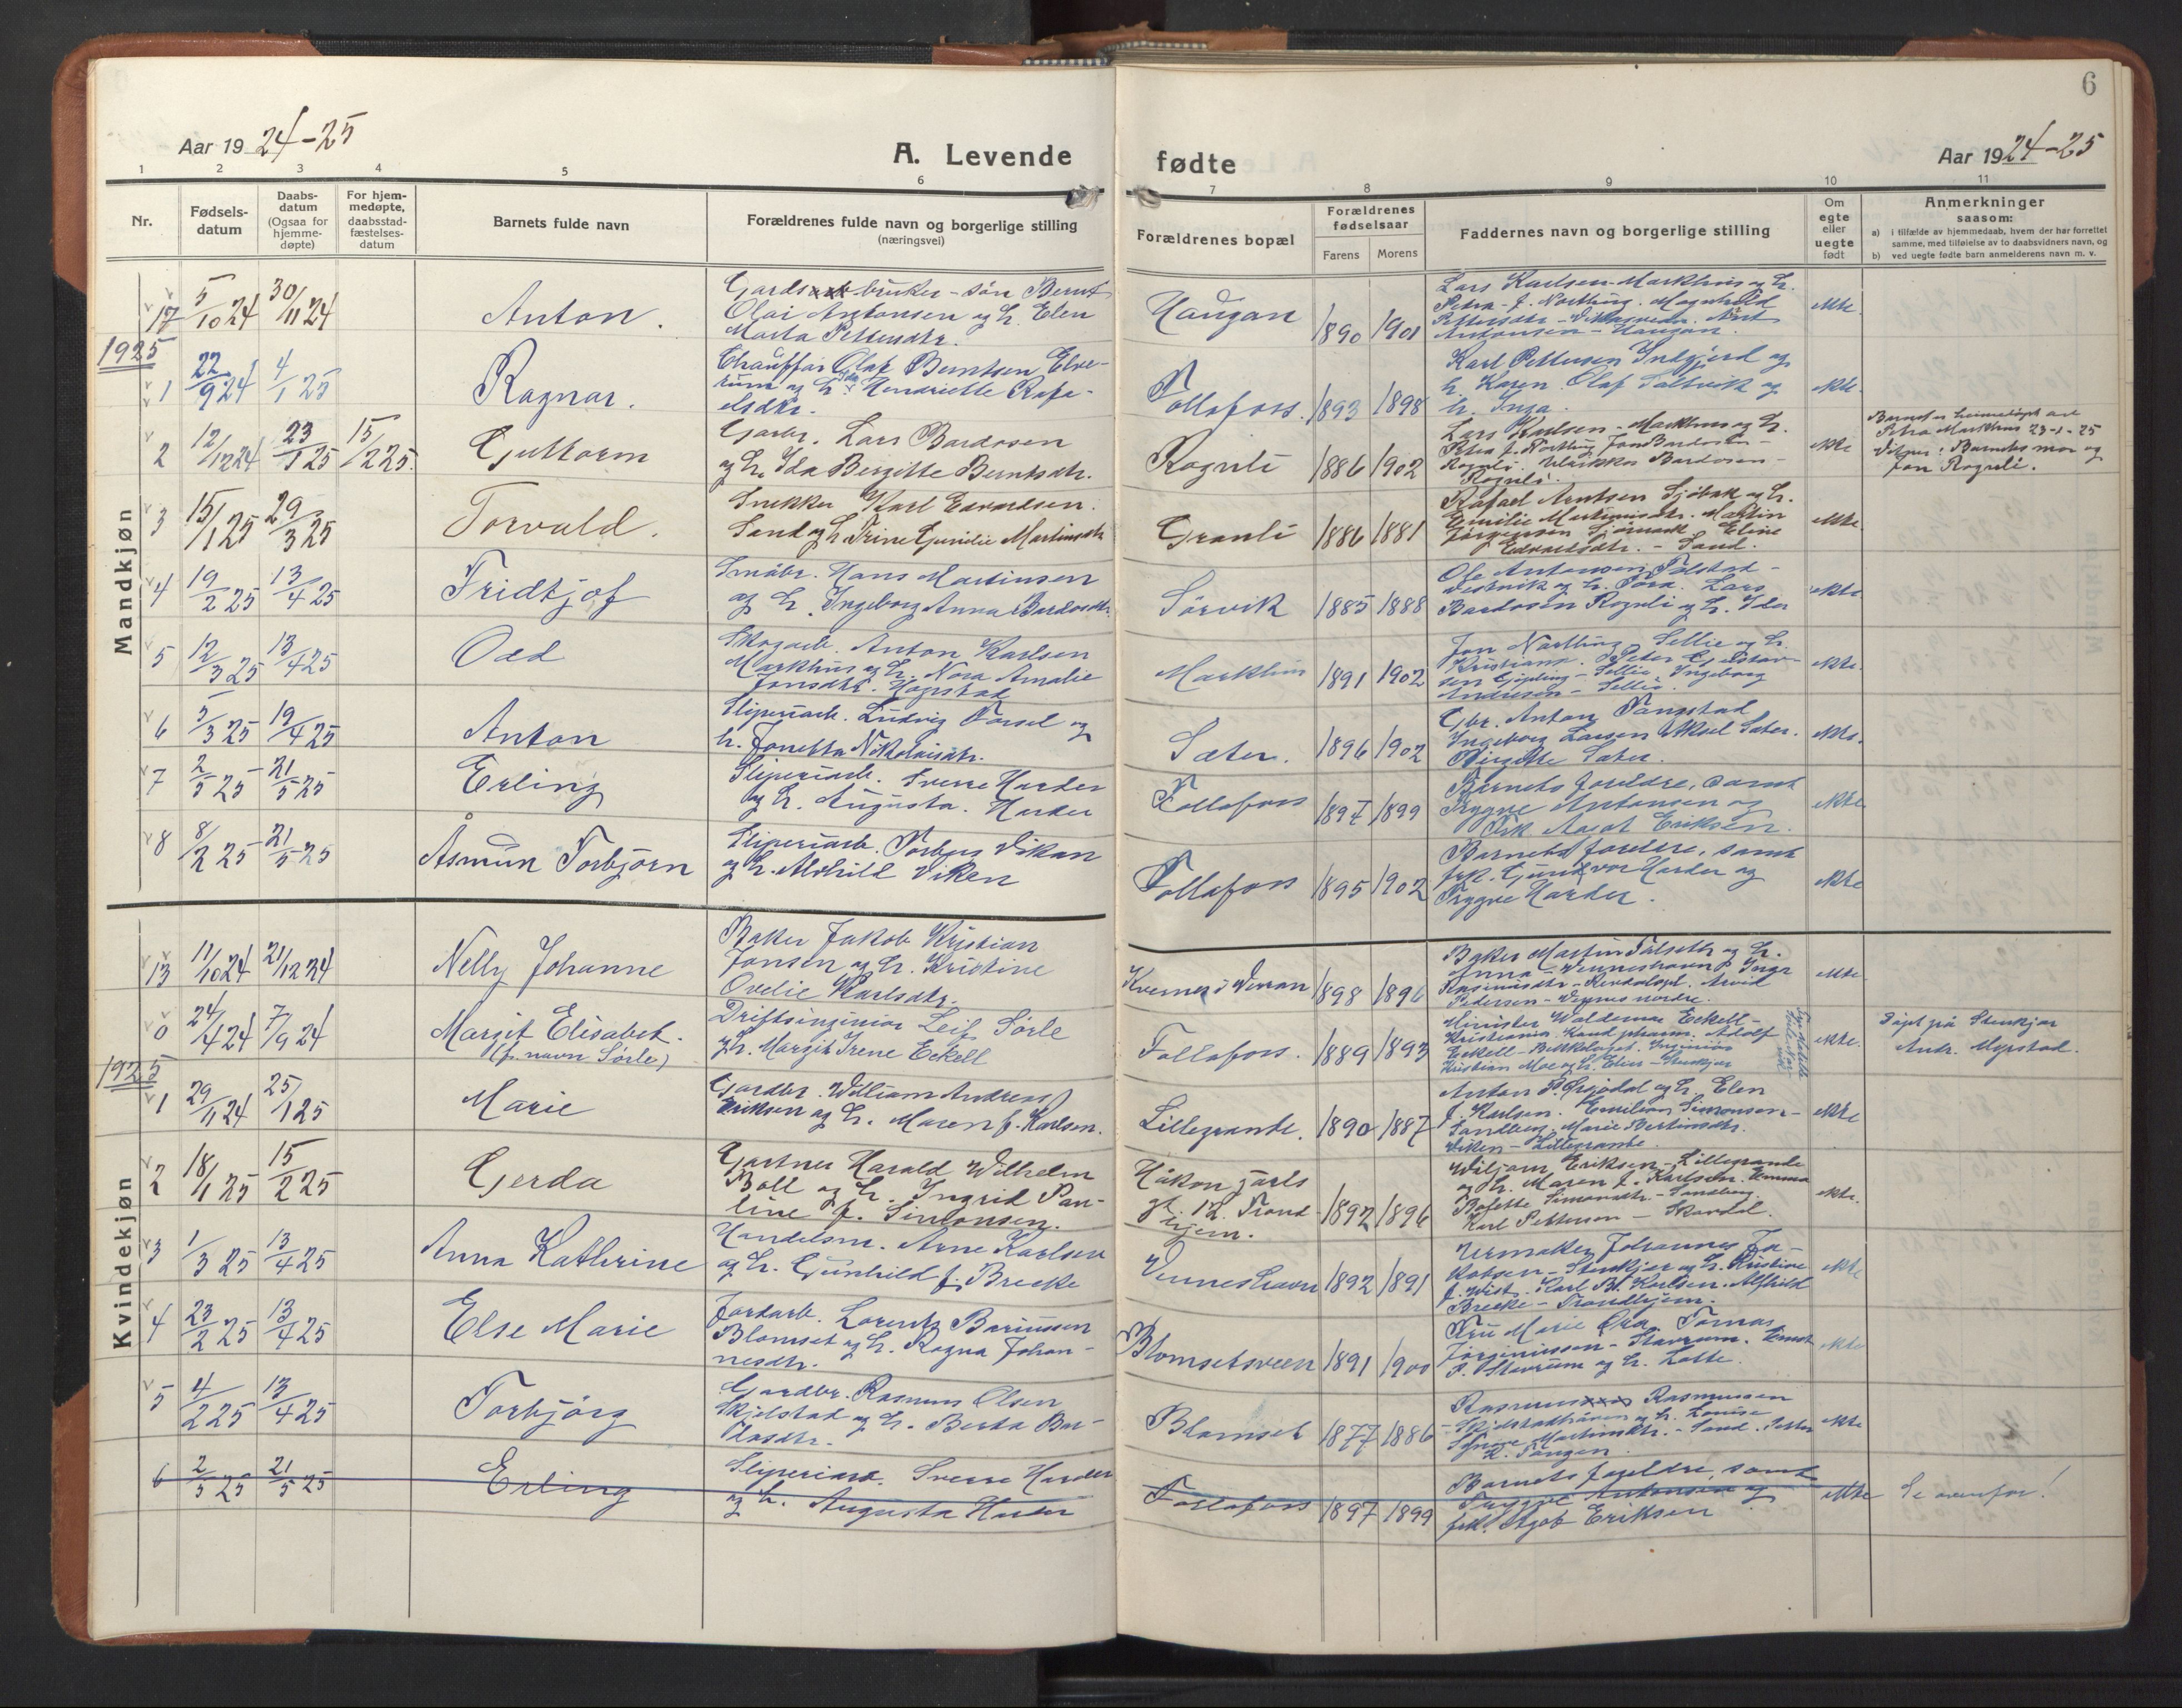 6
Aar 1924-25
A. Levende
fødte
Aar 1924-25
1 2 3 4 5 6 7 8 9 10 11
Nr.
Fødsels-
datum
Daabs-
datum
(Ogsaa for
hjemme-
døpte)
For hjem-
medøpte,
daabsstad-
fæstelses-
datum
Barnets fulde navn
Forældrenes fulde navn og borgerlige stilling
(næringsvei)
Forældrenes bopæl
Forældrenes
fødselsaar
Farens Morens
Faddernes navn og borgerlige stilling
Om
egte
eller
uegte
født
Anmerkninger
saasom:
a) i tilfælde av hjemmedaab, hvem der har forrettet
samme, med tilføielse av to daabsvidners navn, og
b) ved uegte fødte barn anmelderens navn m. v.
Mandkjøn
17 5/10 24 30/11 24 Anton.
Gardsbruker-søn Bernt
Olai Antonsen og h. Elen
Marta Pettersdtr.
Haugan 1890 1901
Lars Karlsen Markhus og h.
Petra f. Nortling. Magnhild
Pettersdtr - Arnt
Antonsen - Haugan.
ekte.
1925
1 22/9 24 4/1 25 Ragnar.
Chauffør Olaf Berntsen Elve-
rum og h. Ida Hendriette Rafa-
elsdtr.
Follafoss. 1893 1898
Karl Pettersen Indgjerd og
h. Karen. Olaf Saltvik og
h. Inga.
ekte.
2 12/12 24 23/1 25 15/2 25. Guttorm
Gardbr. Lars Bardosen
og h. Ida Bergitte Berntsdtr.
Rognli 1886 1902
Lars Karlsen - Markhus og h.
Petra f. Nortling. Jon Bardosen -
Rognli. Ulrikka Bardosen -
Rognli.
ekte
Barnet er heimedøpt av
Petra Markhus 23-1-25
Vitner: Barnets mor og
Jon Rognli.
3 15/1 25 29/3 25 Torvald.
Snekker Karl Edvardsen
Sand og h. Trine Gurilie Martinsdtr
Granli 1886 1881
Rafael Arntsen Sjøbak og h.
Emilie Martinusdtr. Martin
Jørgensen Eline
Edvardsdtr. - Sand.
ekte.
4 19/2 25 13/4 25 Fridtjof
Småbr. Hans Martinsen
og h. Ingeborg Anna Bardosdtr.
Sørvik 1885 1888
Ole Antonsen Tølstad -
Vestvik og h. Tora. Lars
Bardosen Rognli og h. Ida
ekte
5 12/3 25 13/4 25 Odd
Skogarb. Anton Karlsen
Markhus og h. Nora Amalie
Jonsdtr. Hopstad
Markhus 1891 1902
Jon Nortling - Sellie og h.
Kristiane. Peter Gustav-
sen - Sellie. Ingeborg
Andresen - Sellie.
ekte.
6 5/3 25 19/4 25 Anton
Sliperiarb. Ludvig Forsel og
h. Jonetta Nikolaisdtr.
Sæter. 1896 1902
Gbr. Anton Tangstad
Ingeborg Larsen Aksel Sæter.
Birgitte Sæter.
ekte.
7 2/5 25 21/5 25 Erling
Sliperiarb. Sverre Harder
og h. Augusta. Harder
Follafoss 1897 1899
Barnets foreldre, samt
Trygve Antonsen og
Frk Aagot Eriksen.
ekte
8 8/2 25 21/5 25 Åsmun Torbjørn
Sliperiarb. Torberg Vikan
og h. Alvhild Viken
Follafoss 1895 1902
Barnets foreldre, samt
frk. Gundvor Harder og
Trygve Harder.
ekte
Kvindekjøn
13 11/10 24 21/12 24 Nelly Johanne
Baker Jakob Kristian
Jonsen og h. Kristine
Ovelie Karlsdtr.
Kvernes i Verran 1898 1896
Baker Martin Falseth og h.
Anna - Venneshavn. Inga
Arvid
Pedersen - Vennes nordre.
ekte
0 24/4 24 7/9 24 Margit Elisabet.
(f. navn Sørle)
Driftsingeniør Leif Sørle
og h. Margit Irene Eckell
Follafoss. 1889 1893
Minister Waldemar Eckell -
Kristiania. Kand. pharm. Adolf
Eckell - Bekkelaget. Ingeniør
Kristian Moe og h. Elise - Stenkjær
ekte.
Døpt på Stenkjær
Andr. Myrstad.
1925
1 29/11 24 25/1 25 Marie
Gardbr. William Andreas
Eriksen og h. Maren f. Karlsen.
Lillegrande. 1890 1887
Anton P. Ørsjødal og h. Elen
f. Karlsen. Emilian Simonsen -
Sandberg. Marie Bertinsdtr.
Viken - Lillegrande.
ekte
2 18/1 25 15/2 25 Gerda
Gartner Harald Wilhelm
Boll og h. Ingrid Pau-
line f. Simonsen.
Håkon jarls
gt. 12. Trond-
hjem. 1892 1896
Wiljam Eriksen - Lillegrande
og h. Maren f. Karlsen. Emma
Bofette Simonsdtr. - Sandberg.
Karl Petterson - Skavdal.
ekte.
3 1/3 25 13/4 25 Anna Kathrine
Handelsm. Arne Karlsen
og h. Gunhild f. Brecke
Venneshavn 1892 1891
Urmaker Johannes Ja-
kobsen - Stenkjær og h. Kristine
f. Wist. Karl Bl. Karlsen. Alfhild
Brecke - Trondhjem.
ekte
4 23/2 25 13/4 25 Else Marie
Jordarb. Lorentz Bariussen
Blomset og h. Ragna Johan-
nesdtr.
Blomsetsveen 1891 1900
Fru Marie Øra. Tomas
Jørginussen - Stavrum. Ernst
P. Stavrum og h. Lotte.
ekte
5 4/2 25 13/4 25 Torbjørg
Gardbr. Rasmus Olsen
Skjelstad og h. Berta Bar-
dosdtr.
Blomset 1877 1886
Rasmus Rasmussen
Skjelstadtrøen og h. Louise
Martinsdtr. - Sand. Petter
Tangen.
ekte
6 2/5 25 21/5 25 Erling
Sliperiarb. Sverre Harder
og h. Augusta Harder
Follafoss 1897 1899
Barnets foreldre, samt
Trygve Antonsen og
frk. Agot Eriksen
ekte
Se ovenfor!